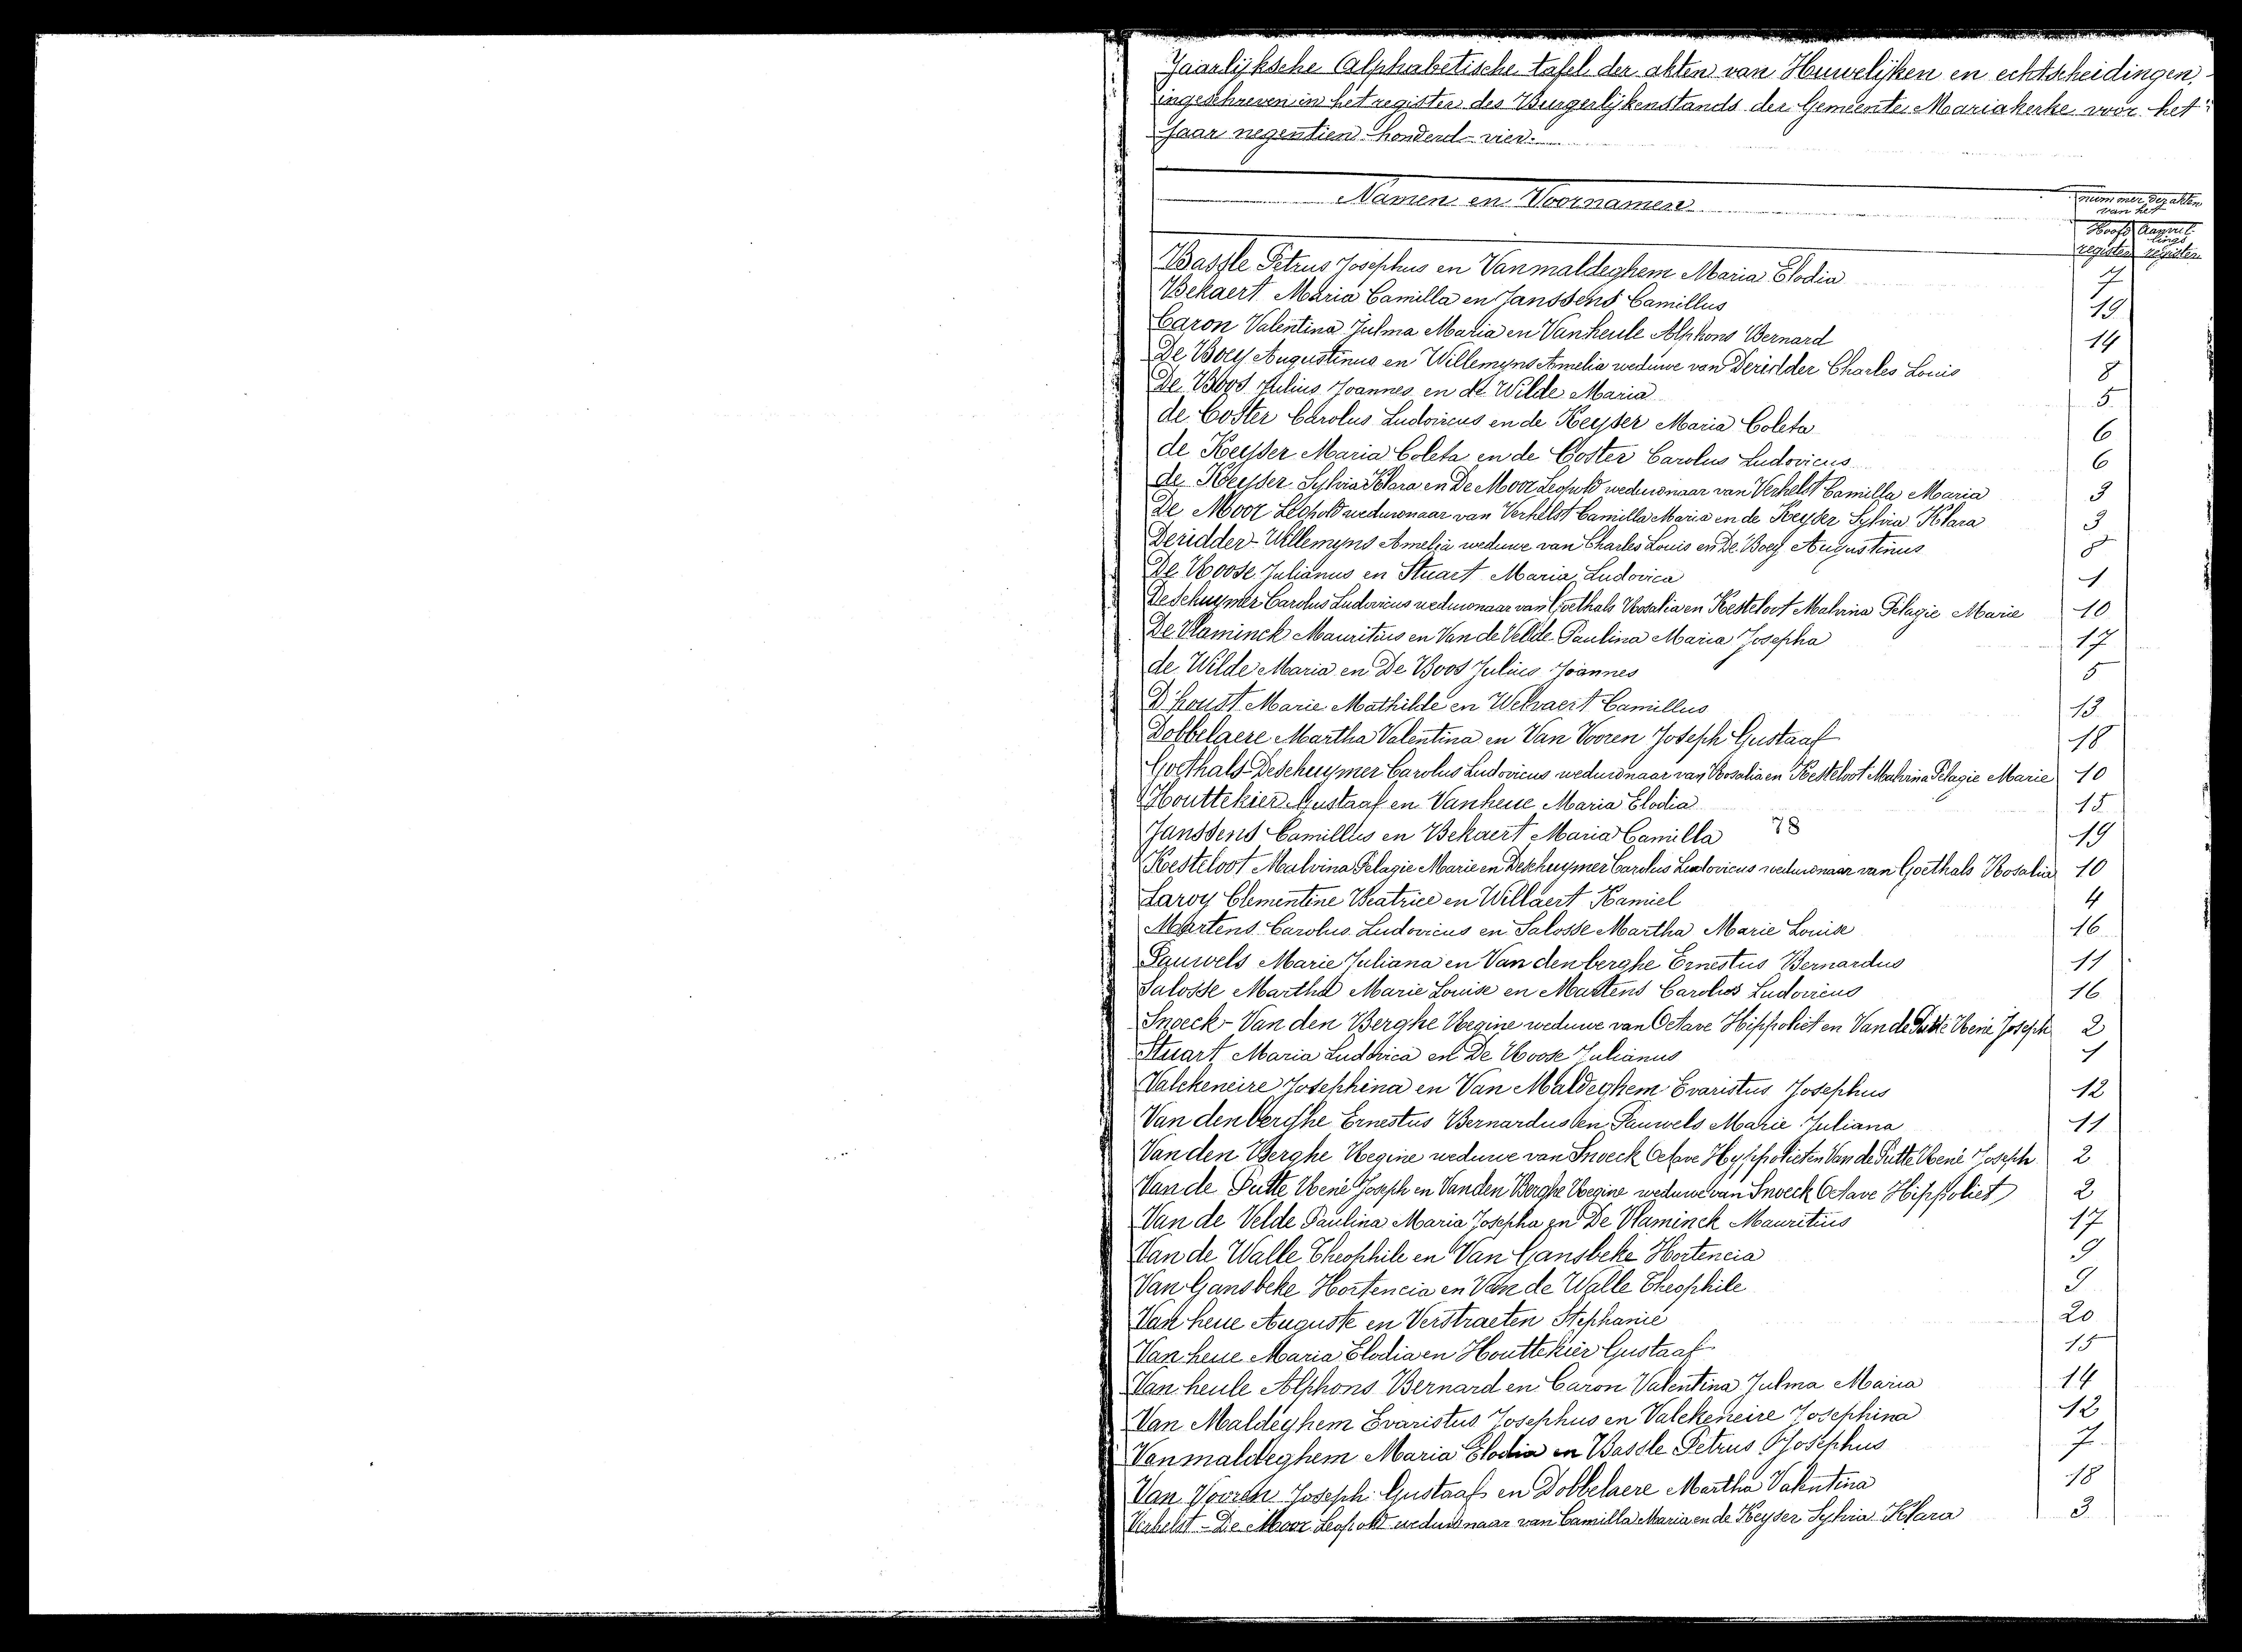 Jaarlijksche Alphabetische tafel der akten van Huwelijken en echtscheidingen,
ingeschreven in het register des Burgerlijkenstands der Gemeente Mariakerke voor het
jaar negentien honderd vier.
Namen en Voornamen
nummer der akten
van het
Hoofd Aanvul-
lings
register register
Bassle Petrus Josephus en Vanmaldeghem Maria Elodia 7
Bekaert Maria Camilla en Janssens Camillus 19
Caron Valentina Julma Maria en Vanheule Alphons Bernard 14
De Boey Augustinus en Willemyns Amelia weduwe van Deridder Charles Louis 8
De Boos Julius Joannes en de Wilde Maria 5
de Coster Carolus Ludovicus en de Keyser Maria Coleta 6
de Keyser Maria Coleta en de Coster Carolus Ludovicus 6
de Keyser Sylvia Klara en De Moor Leopold weduwnaar van Verhelst Camilla Maria 3
De Moor Leopold weduwnaar van Verhelst Camilla Maria en de Keyser Sylvia Klara 3
Deridder-Willemyns Amelia weduwe van Charles Louis en De Boey Augustinus 8
De Roose Julianus en Stuart Maria Ludovica 1
Deschuymer Carolus Ludovicus weduwnaar van Goethals Rosalia en Kesteloot Malvina Pelagie Marie 10
De Vlaminck Mauritius en Van de Velde Paulina Maria Josepha 17
de Wilde Maria en De Boos Julius Joannes 5
D'hont Marie Mathilde en Welvaert Camillus 13
Dobbelaere Martha Valentina en Van Vooren Joseph Gustaaf 18
Goethals-Deschuymer Carolus Ludovicus weduwnaar van Rosalia en Kesteloot Malvina Pelagie Marie 10
Houttekier Gustaaf en Vanheue Maria Elodia 15
Janssens Camillus en Bekaert Maria Camilla 78 19
Kesteloot Malvina Pelagie Marie en Deschuymer Carolus Ludovicus weduwnaar van Goethals Rosalia 10
Laroy Clementine Beatrice en Willaert Kamiel 4
Martens Carolus Ludovicus en Salosse Martha Marie Louise 16
Pauwels Marie Juliana en Van denberghe Ernestus Bernardus 11
Salosse Martha Marie Louise en Martens Carolus Ludovicus 16
Snoeck-Van den Berghe Regine weduwe van Octave Hippoliet en Van de Putte René Joseph 2
Stuart Maria Ludovica en De Roose Julianus 1
Valckeneire Josephina en Van Maldeghem Evaristus Josephus 12
Van denberghe Ernestus Bernardus en Pauwels Marie Juliana 11
Van den Berghe Regine weduwe van Snoeck Octave Hyppoliet en Van de Putte René Joseph 2
Van de Putte René Joseph en Vanden Berghe Regine weduwe van Snoeck Octave Hippoliet 2
Van de Velde Paulina Maria Josepha en De Vlaminck Mauritius 17
Van de Walle Theophile en Van Gansbeke Hortencia 9
Van Gansbeke Hortencia en Van de Walle Theophile 9
Van heue Auguste en Verstraeten Stephanie 20
Van heue Maria Elodia en Houttekier Gustaaf 15
Van heule Alphons Bernard en Caron Valentina Julma Maria 14
Van Maldeghem Evaristus Josephus en Valckeneire Josephina 12
Vanmaldeghem Maria Elodia en Bassle Petrus Josephus 7
Van Vooren Joseph Gustaaf en Dobbelaere Martha Valentina 18
Verhelst - De Moor Leopold weduwnaar van Camilla Maria en de Keyser Sylvia Klara 3